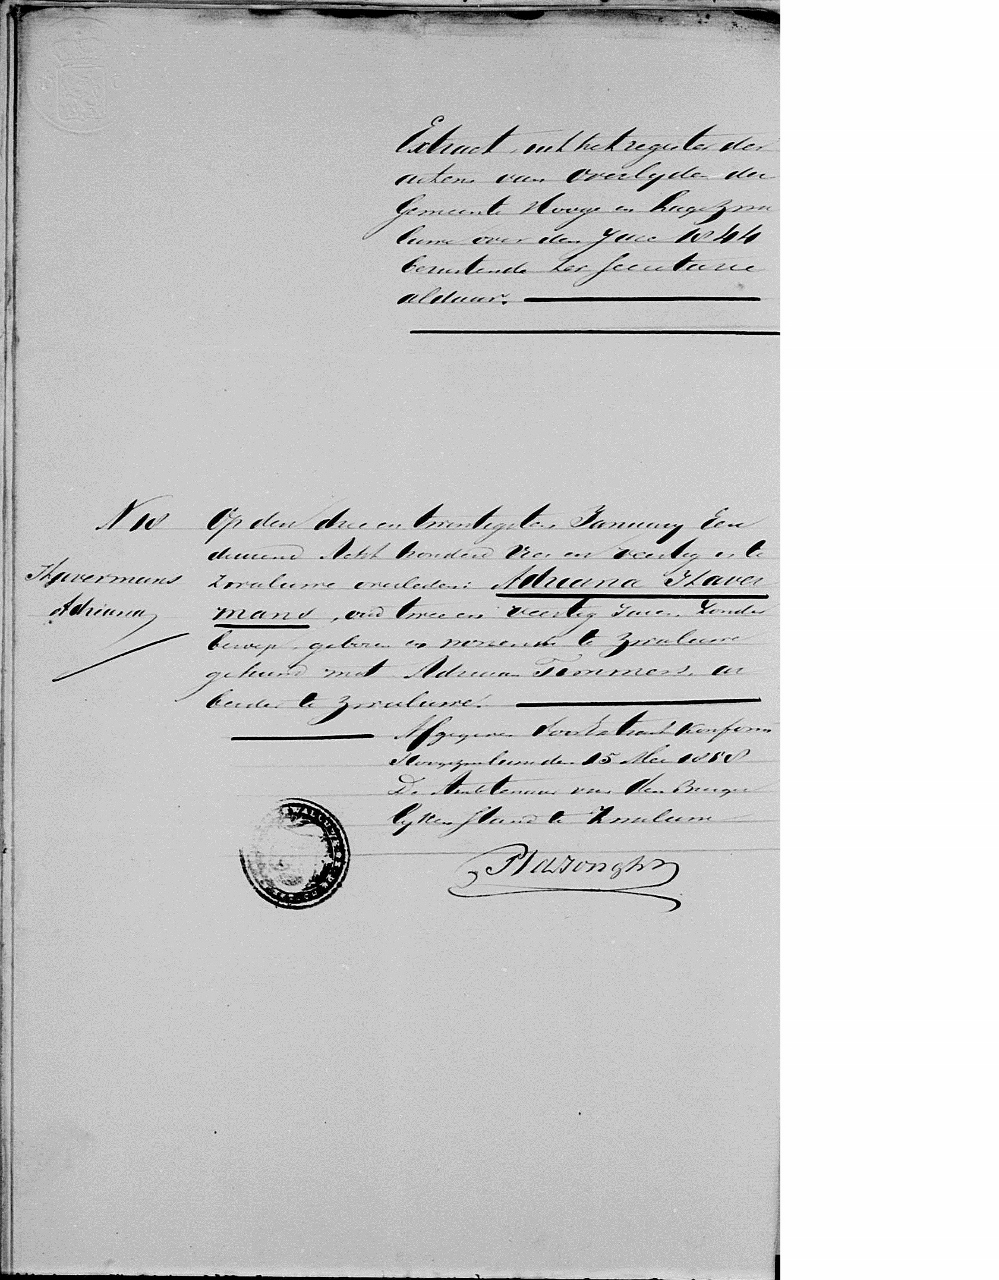 Extract uit het register der
actens van overlyden der
Gemeente Hooge en Lage Zwa
luwe over den Jare 1844
berustende ter Secretarie
aldaar.
N 18 Op den drie en twintigsten January Een
duizend Acht honderd vier en veertig is te
Havermans Zwaluwe overleden: Adriana Haver
Adriana mans, oud twee en veertig Jaren, Zonder
beroep, geboren en wonende te Zwaluwe
gehuwd met Adriaan Timmers, ar
beider te Zwaluwe.
Afgegeven voor Extract Konform
Hoogezwaluwe den 15 Mei 1858
De Ambtenaar van den Burger
lyken Stand te Zwaluwe